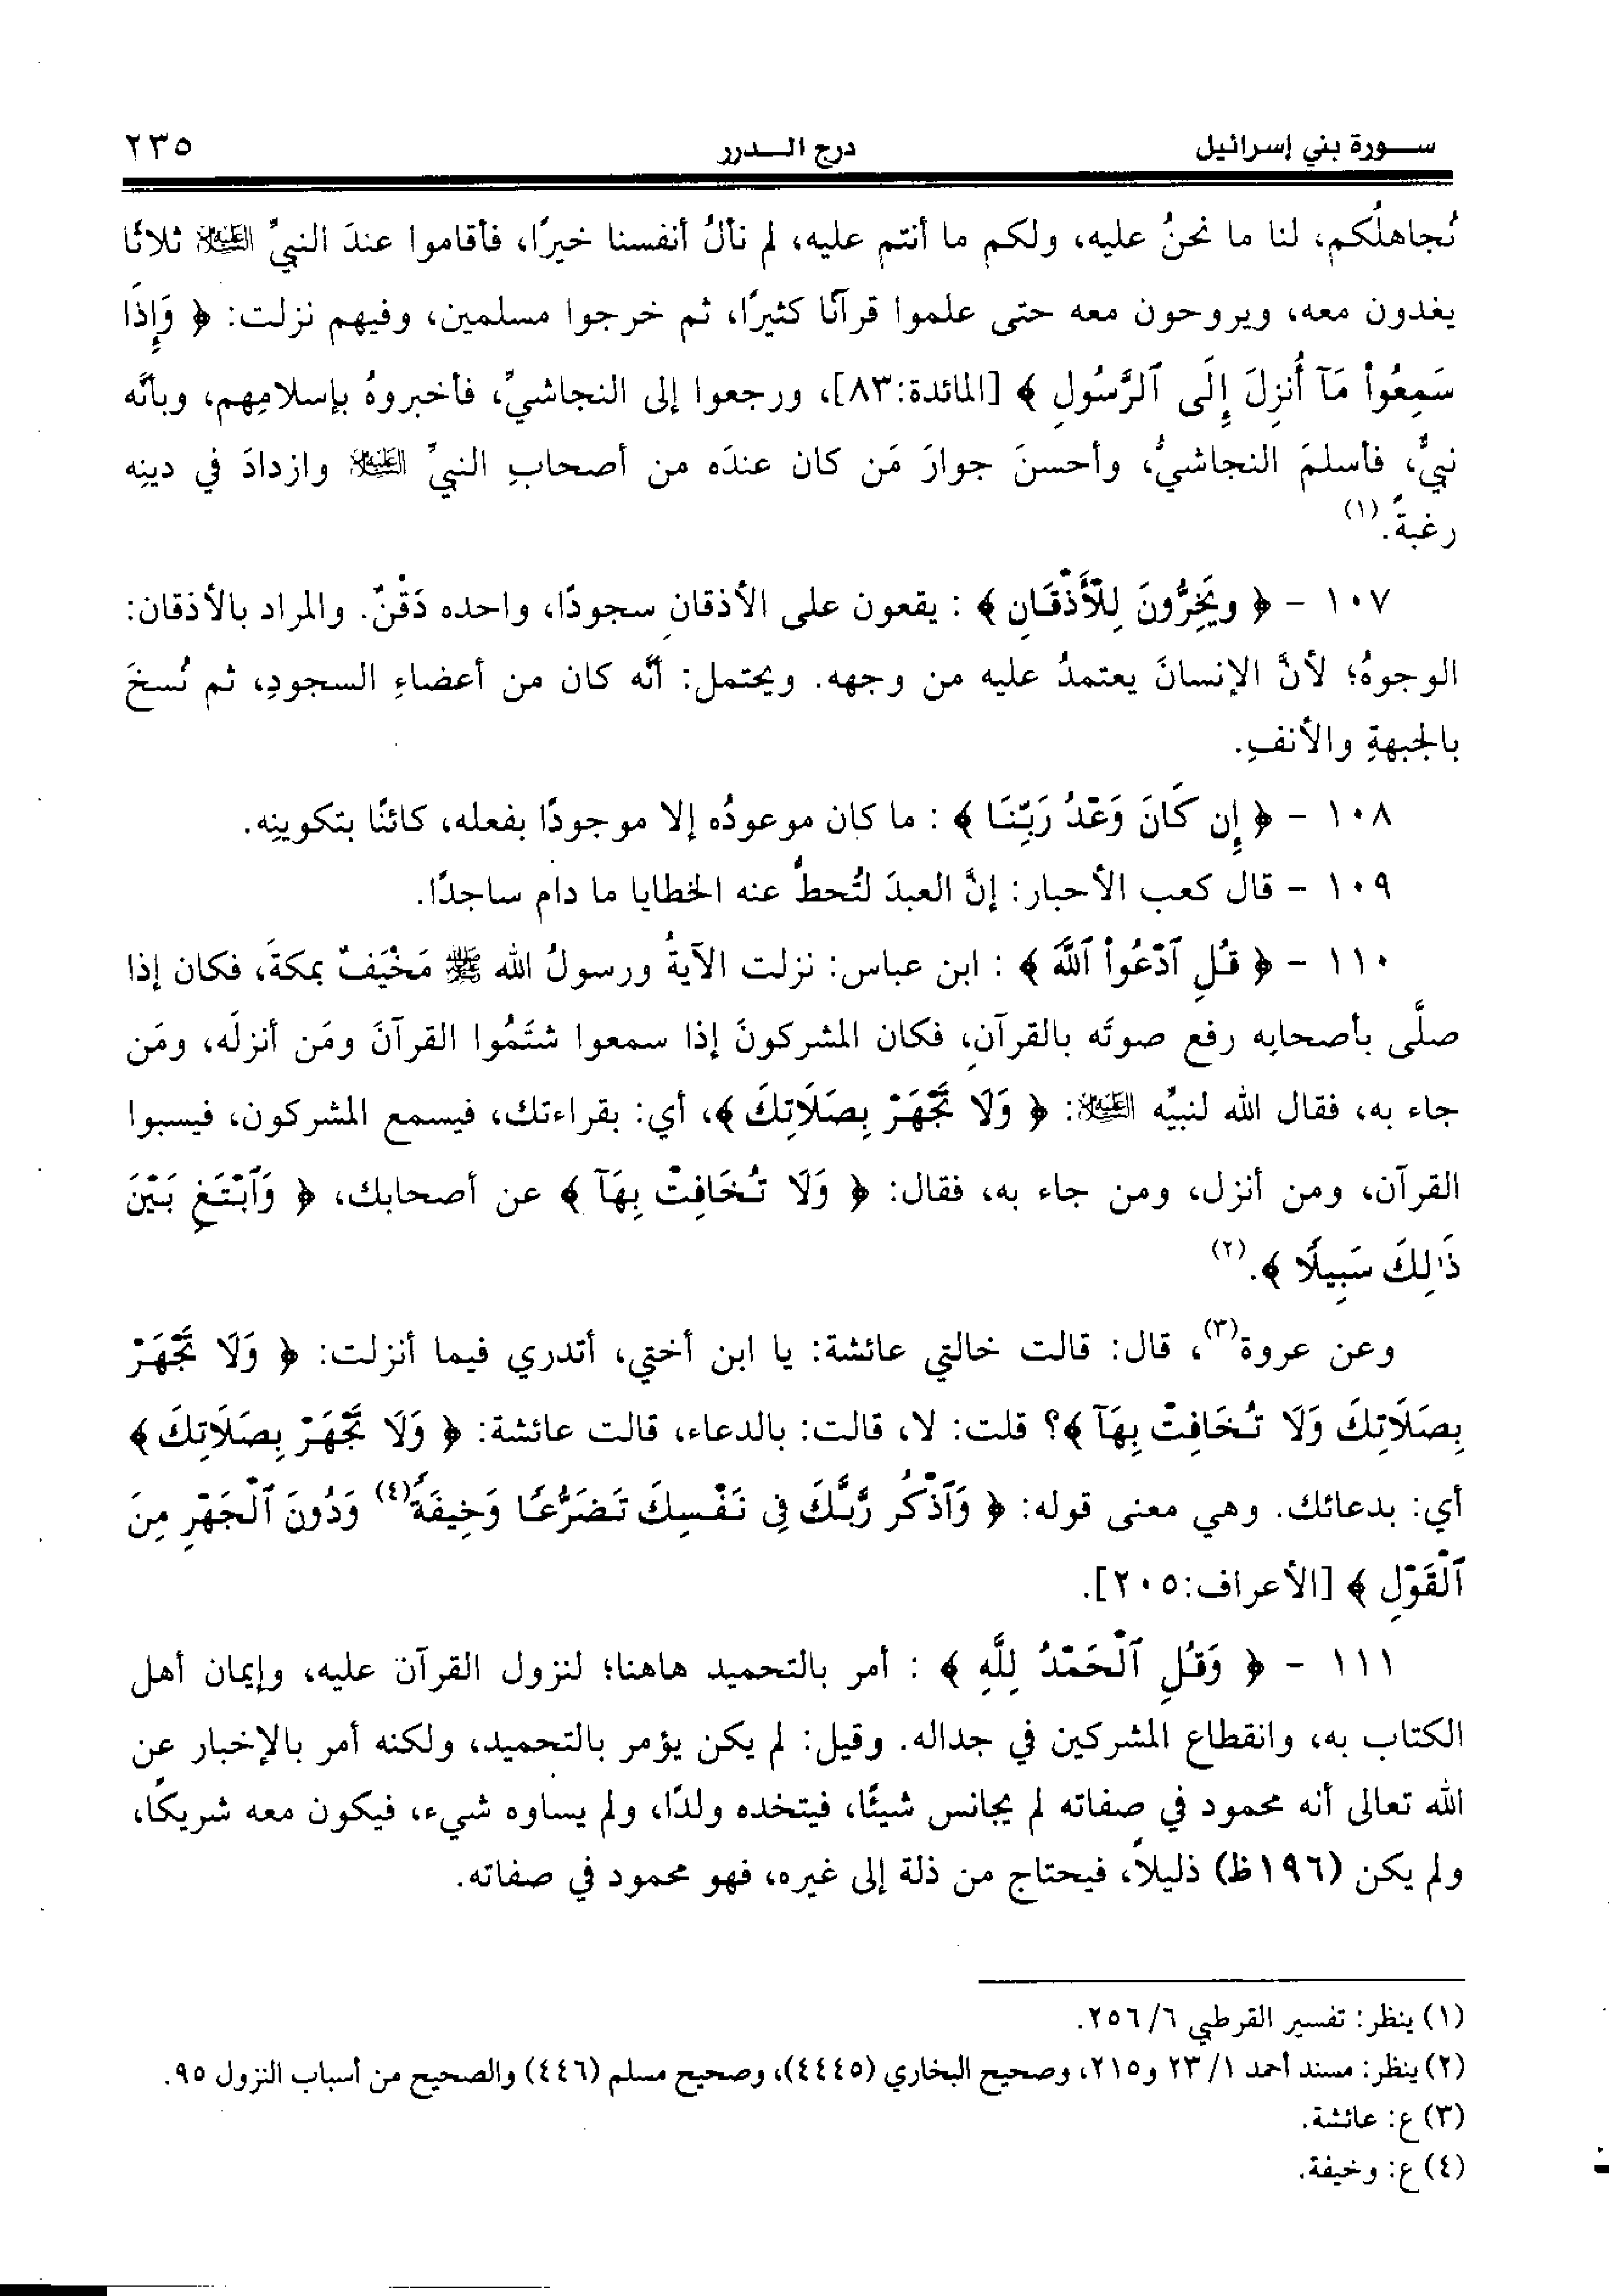 سورة بني إسرائيل درج الدرر ٢٣٥
نُجاهلُكم، لنا ما نحنُ عليه، ولكم ما أنتم عليه، لم نألُ أنفسنا خيرًا، فأقاموا عندَ النبيِّ الشَّيِّة ثلاثًا
يغدون معه، ويروحون معه حتى علموا قرآنًا كثيرًا، ثم خرجوا مسلمين، وفيهم نزلت: ﴿ وَإِذَا
سَمِعُواْ مَآ أُنزِلَ إِلَى ٱلرَّسُولِ ﴾ [المائدة:٨٣]، ورجعوا إلى النجاشيِّ، فأخبروهُ بإسلامِهم، وبأنَّه
نبيٌّ، فأسلمَ النجاشيُّ، وأحسنَ جوارَ مَن كان عندَه من أصحابِ النبيِّ العَلَيْهِ وازدادَ في دينِه
رغبةً.(١)
١٠٧ - ﴿ ويَخِرُّونَ لِلْأَذْقَانِ ﴾ : يقعون على الأذقانِ سجودًا، واحده ذَقْنٌ. والمراد بالأذقان:
الوجوهُ؛ لأنَّ الإنسانَ يعتمدُ عليه من وجهه. ويحتمل: أنَّه كان من أعضاءِ السجودِ، ثم نُسخَ
بالجبهةِ والأنفِ.
١٠٨ - ﴿ إِن كَانَ وَعْدُ رَبِّنَا ﴾ : ما كان موعودُه إلا موجودًا بفعله، كائنًا بتكوينِه.
١٠٩ - قال كعب الأحبار: إنَّ العبدَ لتُحطُّ عنه الخطايا ما دام ساجدًا.
١١٠ - ﴿ قُلِ ٱدْعُواْ ٱللَّهَ ﴾ : ابن عباس: نزلت الآيةُ ورسولُ الله ﷺ مَخْيَفٌ بمكةَ، فكان إذا
صلَّى بأصحابه رفع صوتَه بالقرآنِ، فكان المشركونَ إذا سمعوا شتَمُوا القرآنَ ومَن أنزلَه، ومَن
جاء به، فقال الله لنبيِّه العَلَيْهِ: ﴿ وَلَا تَجْهَرْ بِصَلَاتِكَ ﴾، أي: بقراءتك، فيسمع المشركون، فيسبوا
القرآن، ومن أنزل، ومن جاء به، فقال: ﴿ وَلَا تُخَافِتْ بِهَآ ﴾ عن أصحابك، ﴿ وَٱبْتَغِ بَيْنَ
ذَٰلِكَ سَبِيلًا ﴾.(٢)
وعن عروة(٣)، قال: قالت خالتي عائشة: يا ابن أختي، أتدري فيما أنزلت: ﴿ وَلَا تَجْهَرْ
بِصَلَاتِكَ وَلَا تُخَافِتْ بِهَآ ﴾؟ قلت: لا، قالت: بالدعاء، قالت عائشة: ﴿ وَلَا تَجْهَرْ بِصَلَاتِكَ ﴾
أي: بدعائك. وهي معنى قوله: ﴿ وَٱذْكُر رَّبَّكَ فِى نَفْسِكَ تَضَرُّعًا وَخِيفَةً(٤) وَدُونَ ٱلْجَهْرِ مِنَ
ٱلْقَوْلِ ﴾ [الأعراف:٢٠٥].
١١١ - ﴿ وَقُلِ ٱلْحَمْدُ لِلَّهِ ﴾ : أمر بالتحميد هاهنا؛ لنزول القرآن عليه، وإيمان أهل
الكتاب به، وانقطاع المشركين في جداله. وقيل: لم يكن يؤمر بالتحميد، ولكنه أمر بالإخبار عن
الله تعالى أنه محمود في صفاته لم يجانس شيئًا، فيتخذه ولدًا، ولم يساوه شيء، فيكون معه شريكًا،
ولم يكن (١٩٦ظ) ذليلاً، فيحتاج من ذلة إلى غيره، فهو محمود في صفاته.
(١) ينظر: تفسير القرطبي ٦/ ٢٥٦.
(٢) ينظر: مسند أحمد ١/ ٢٣ و٢١٥، وصحيح البخاري (٤٤٤٥)، وصحيح مسلم (٤٤٦) والصحيح من أسباب النزول ٩٥.
(٣) ع: عائشة.
(٤) ع: وخيفة.